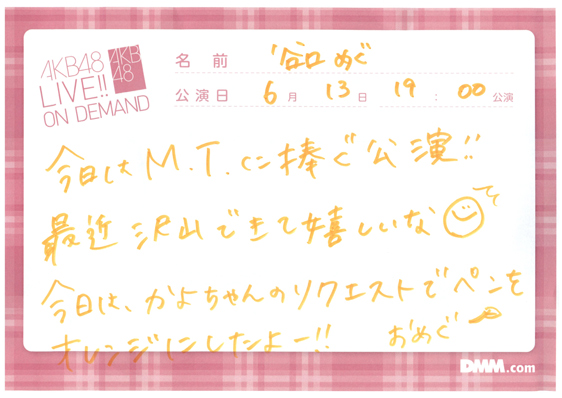 AKB48
LIVE!!
ON DEMAND
AKB
48
名 前 谷口めぐ
公演日 6月 13日 19 : 00 公演
今日は M.T.に捧ぐ公演!!
最近沢山できて嬉しいな
今日は、かよちゃんのリクエストでペンを
オレンジにしたよー!!
おめぐ
DMM.com